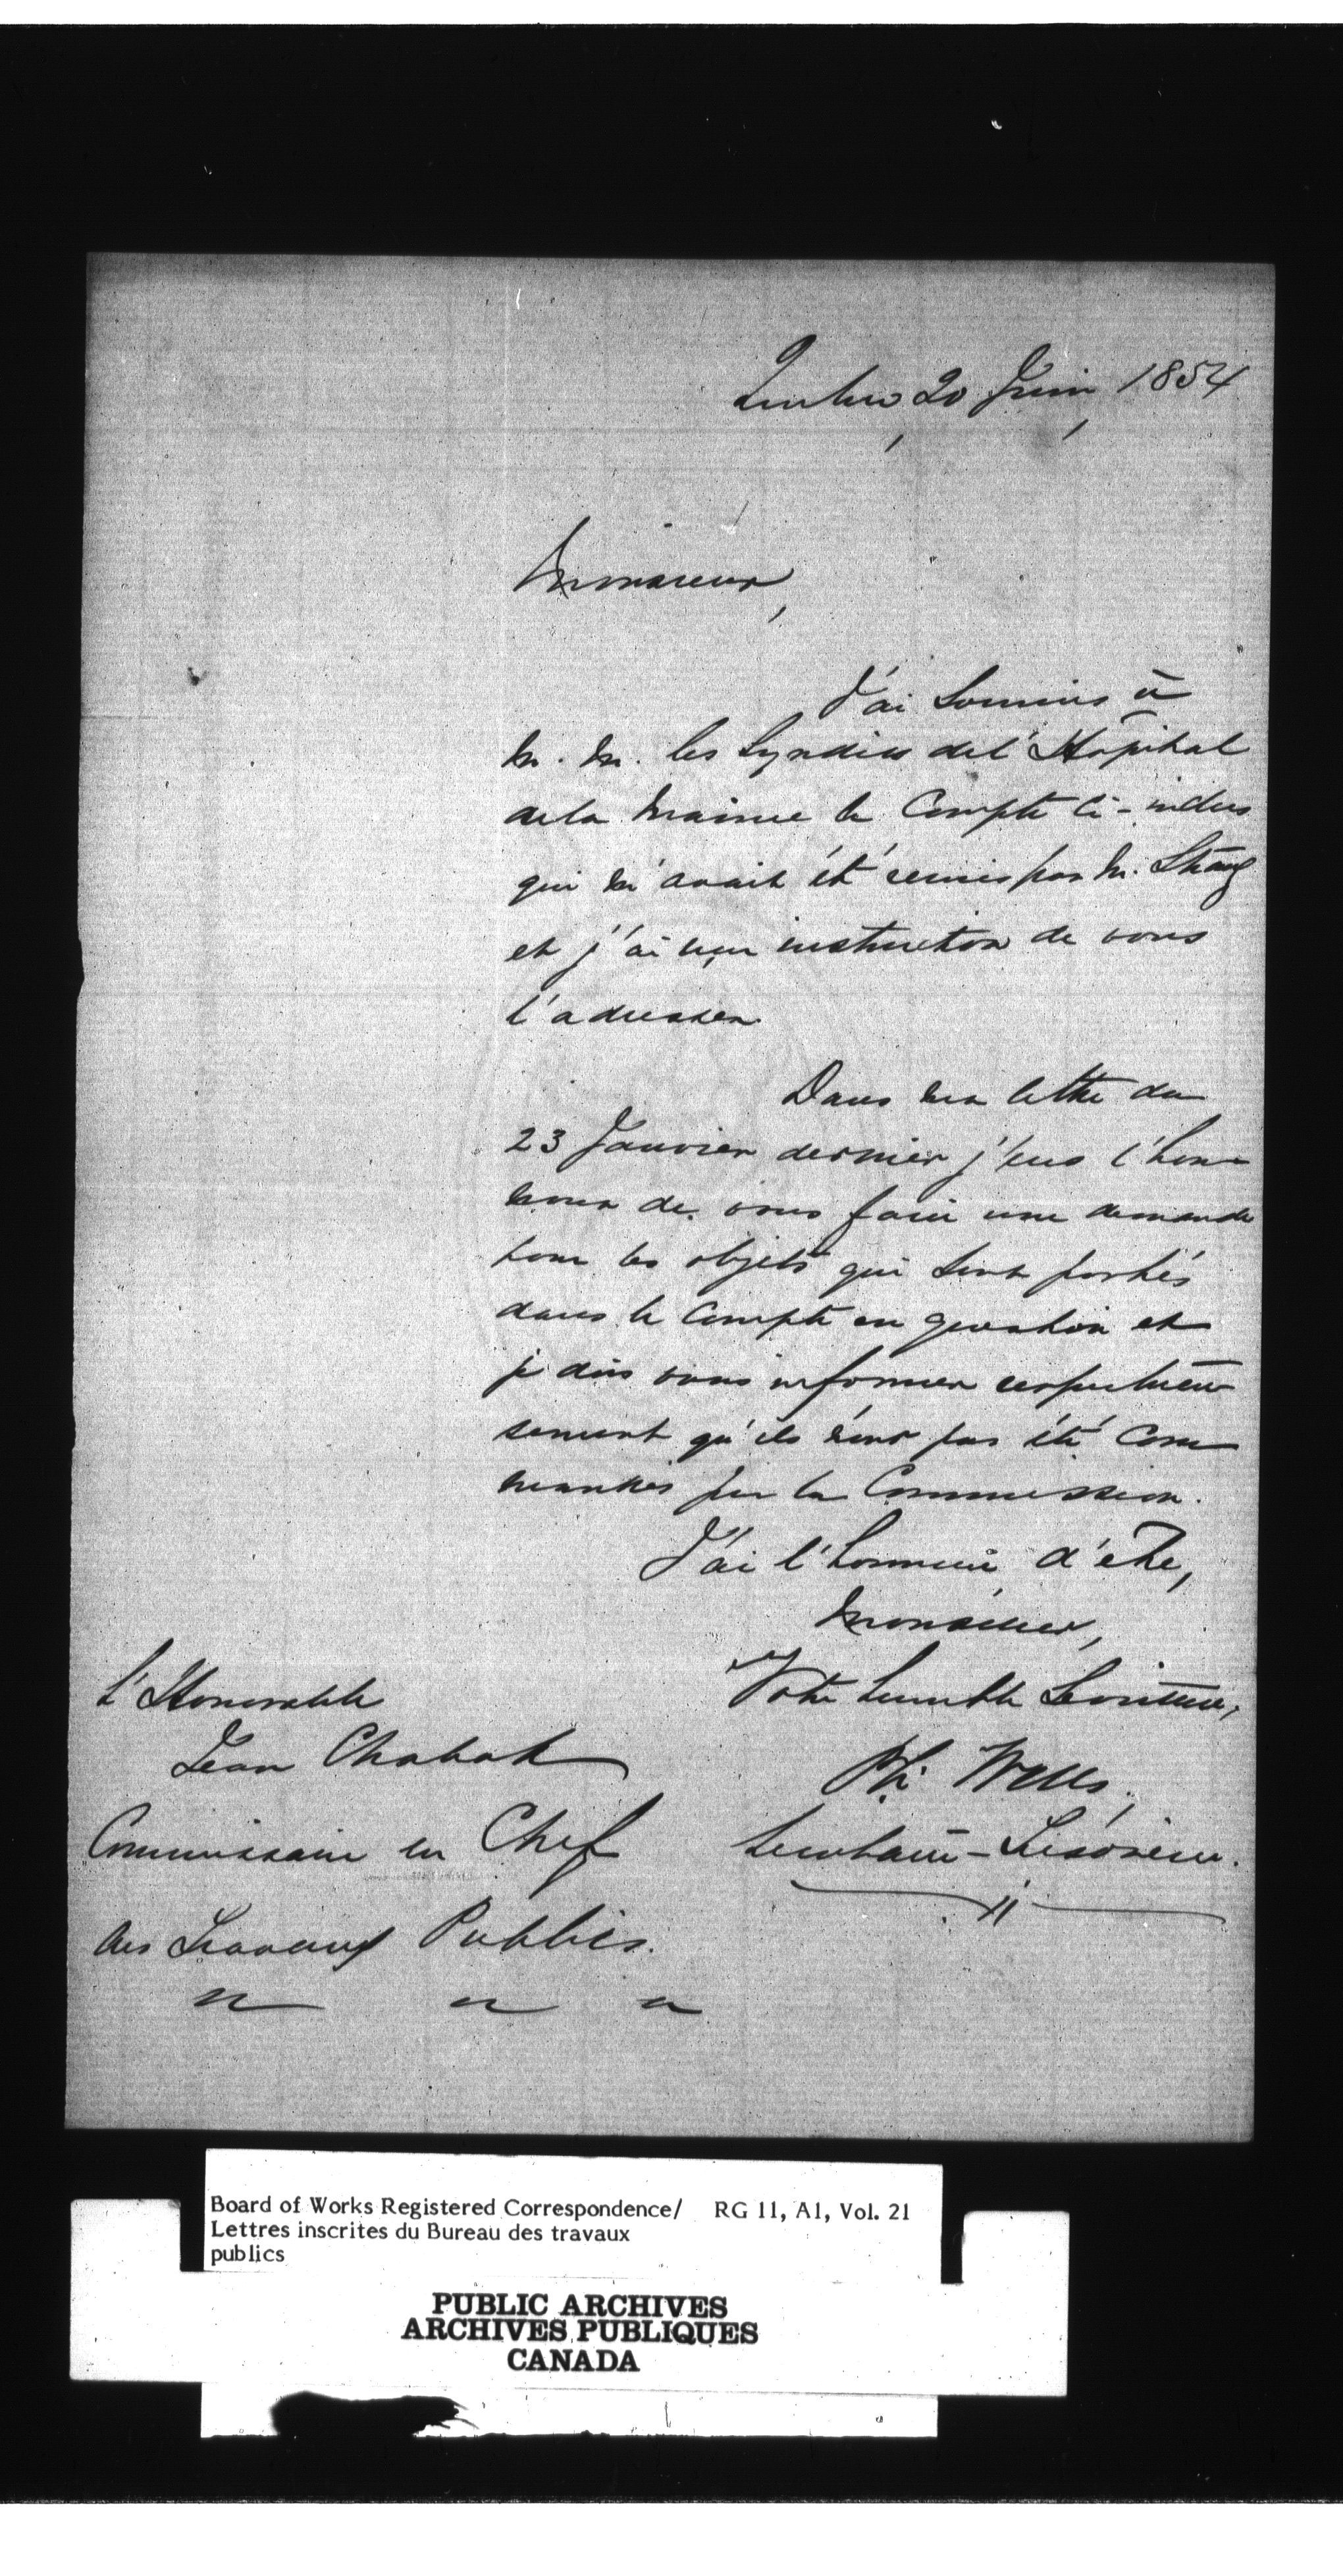 Quebec, 20 Juin, 1854
Monsieur,
J'ai soumis à
M. M. les Syndics de l'Hôpital
de la Marine le Compte ci-inclus
qui m'avait été remis par M.
et j'ai reçu instruction de vous
l'adresser.
Dans ma lettre du
23 Janvier dernier j'eus l'hon-
neur de vous faire une demande
pour les objets qui sont portés
dans le Compte en question et
je dois vous informer respectueu-
sement qu'ils n'ont pas été com-
mandés par la Commission.
J'ai l'honneur d'être,
Monsieur,
Votre humble Serviteur,
Ph. Wells,
Secrétaire-Trésorier.
L'Honorable
Jean Chabot
Commissaire en Chef
des Travaux Publics.
" " "
Board of Works Registered Correspondence/ RG 11, A1, Vol. 21
Lettres inscrites du Bureau des travaux
publics
PUBLIC ARCHIVES
ARCHIVES PUBLIQUES
CANADA